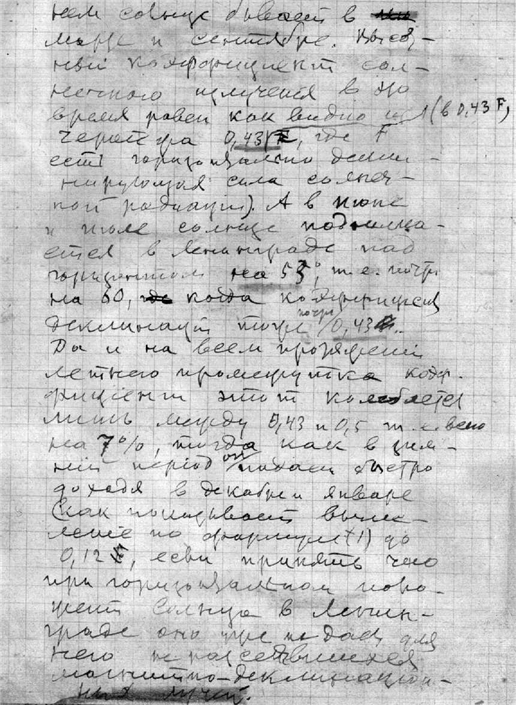 нем солнце бывает в
марте и сентябре.
ный коэффициент сол-
нечного излучения в это
время равен как видно из 1 (в 0,43 F,
0,43 F, где F
есть горизонтально декли-
нирующая сила солнеч-
ной радиации). А в июне
и июле солнце поднима-
ется в Ленинграде над
горизонтом на 53°, т.е. почти
на 60, когда коэффициент
деклинации почти 0,43.
Да и на всем протяжении
летнего промежутка коэф-
фициент этот колеблется
лишь между 0,43 и 0,5 т.е. всего
на 7%, тогда как в зим-
ний период он падает быстро
доходя в декабре и январе
(как показывает вычис-
ление по формуле (1) до
0,12 F, если принять что
при горизонтальном поло-
жении Солнца в Ленин-
граде оно для
него
магнитно-деклинацион-
ных лучей.